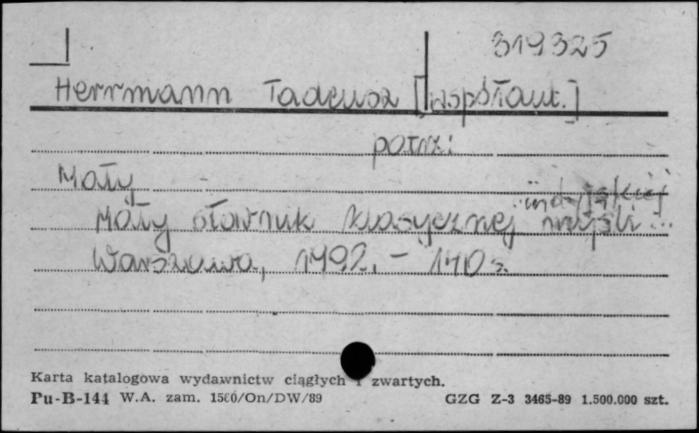 319325
Herrmann Tadeusz [współaut.]
patrz:
Mały
indyjskiej
Mały słownik klasycznej myśli ...
Warszawa, 1992. - 140 s.
Karta katalogowa wydawnictw ciągłych i zwartych.
Pu-B-144 W.A. zam. 1560/On/DW/89 GZG Z-3 3465-89 1.500.000 szt.